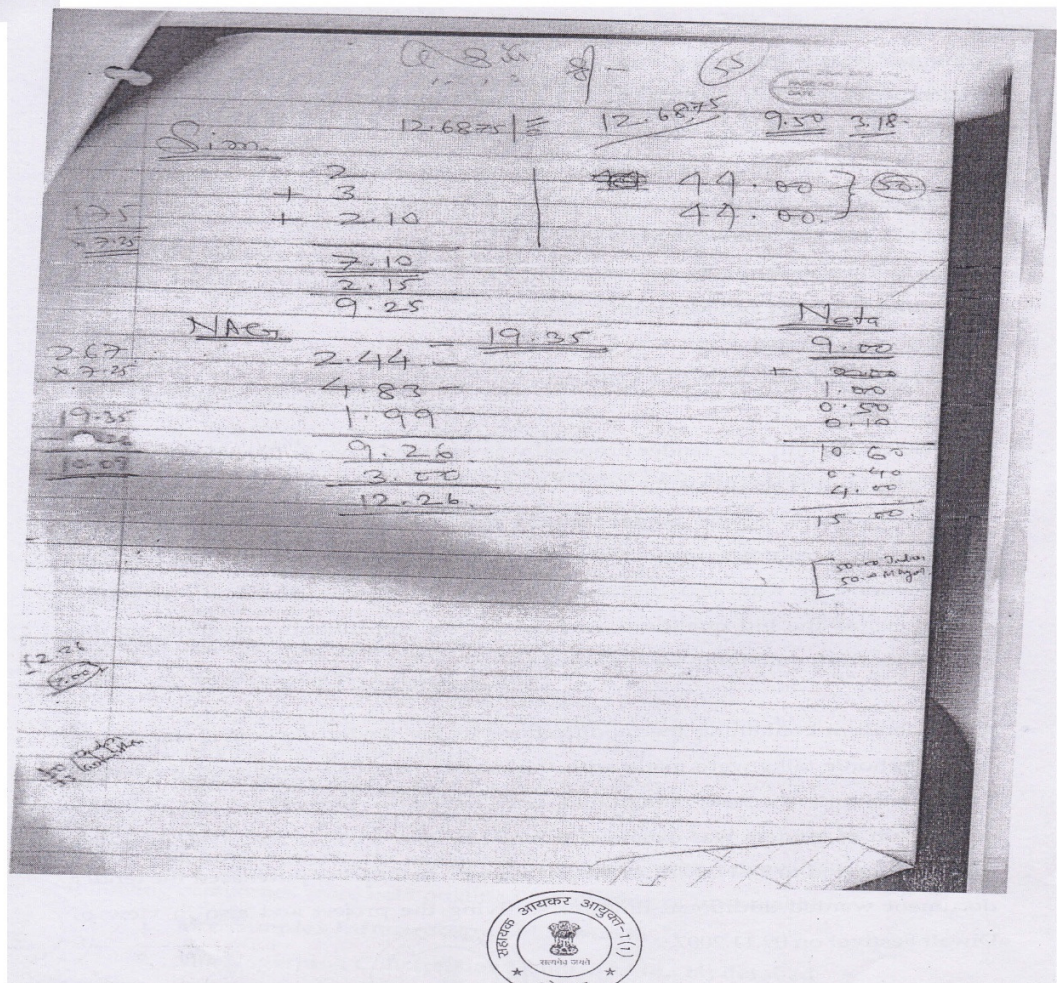 55
PAGE NO.
DATE
12.6875 | = 12.6875 9.50 3.18
Sim
2
+ 3
+ 2.10
7.10
2.15
9.25
44.00 } 50.
44.00.
175
× 7.25
NAG 19.35
2.44 -
4.83 -
1.99
9.26
3.00
12.26
267
× 7.25
19.35
10.09
Neta
9.00
+
1.00
0.50
0.10
10.60
0.40
4.00
15.00.
50.00
50.00
12.26
- 7.00
सहायक आयकर आयुक्त-1(1)
सत्यमेव जयते